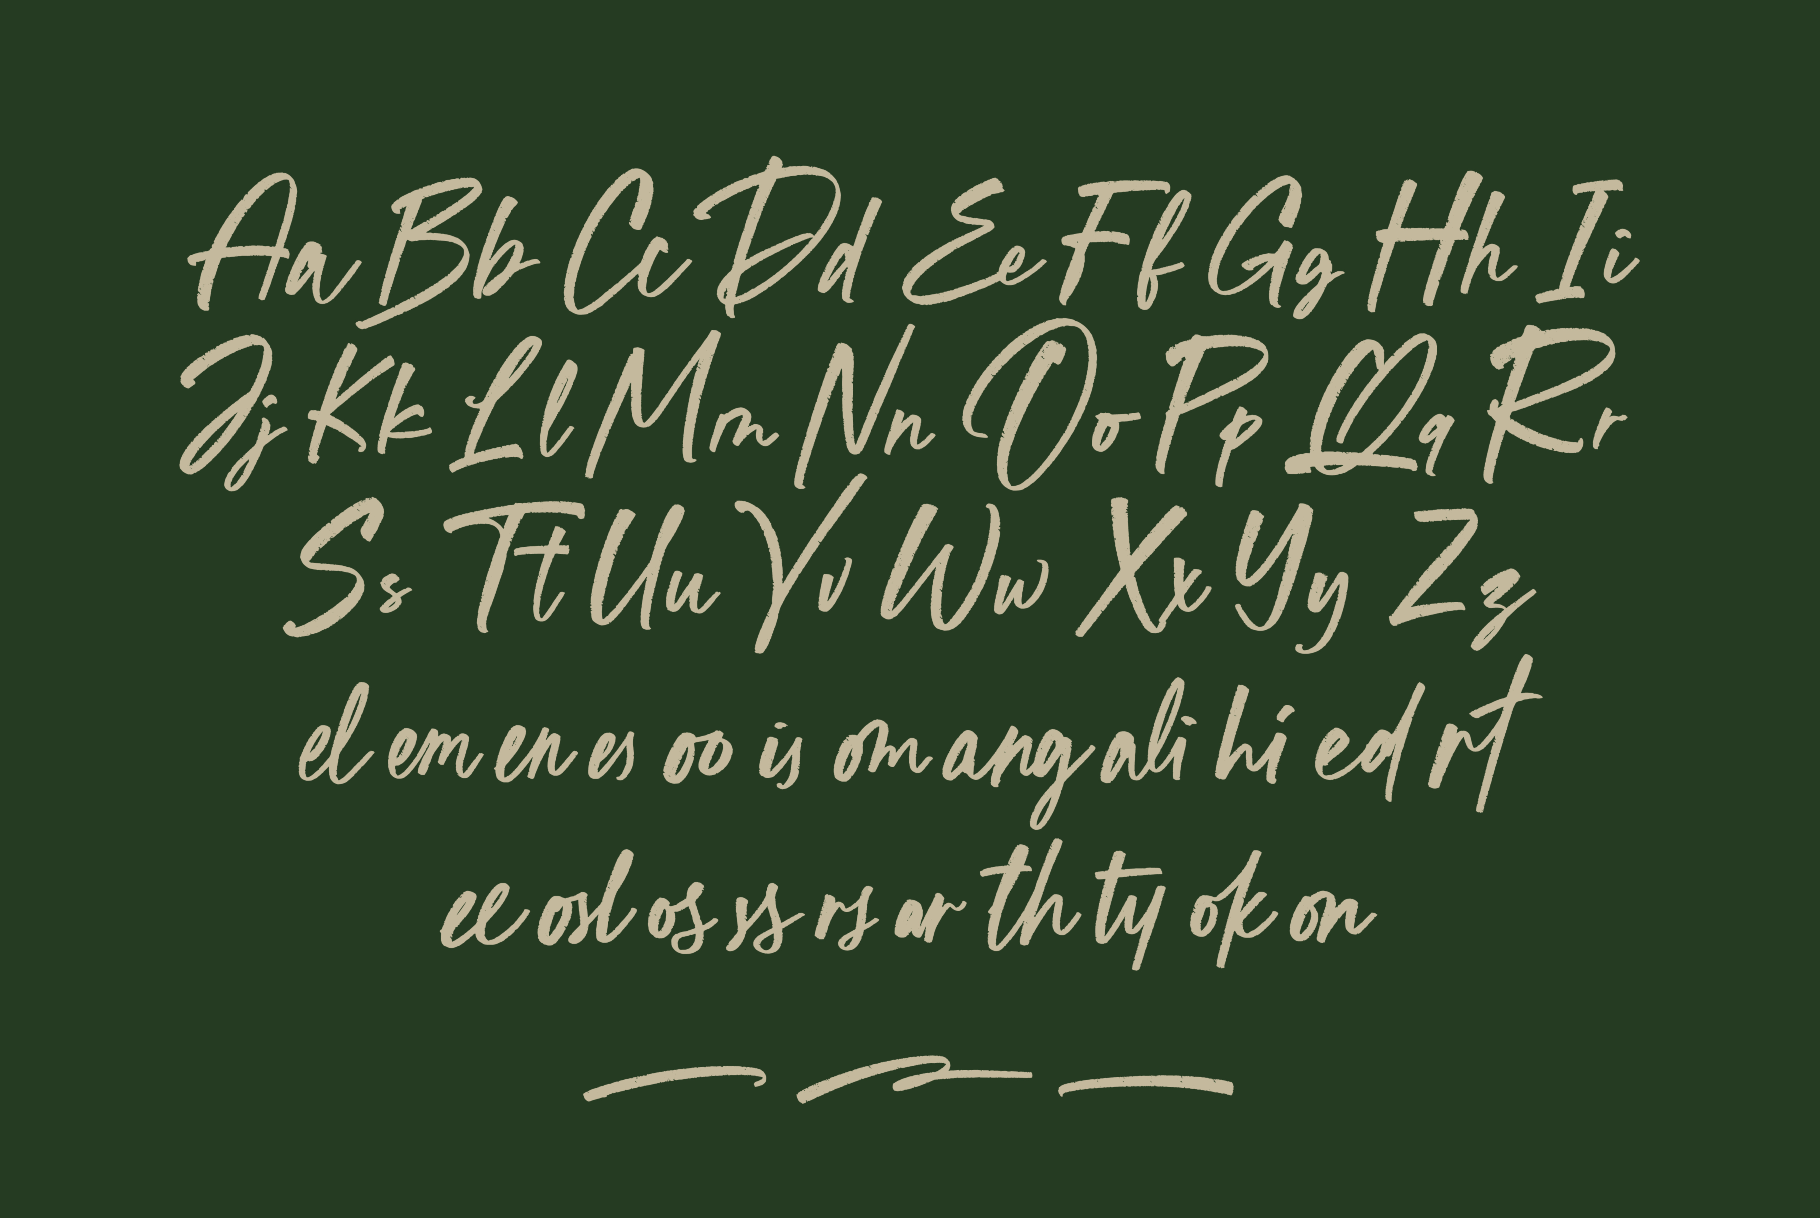 Aa Bb Cc Dd Ee Ff Gg Hh Ii
Jj Kk Ll Mm Nn Oo Pp Qq Rr
Ss Tt Uu Vv Ww Xx Yy Zz
el em en es oo is om ang ali hi ed rt
ee osl os ss rs ar th ty ok on